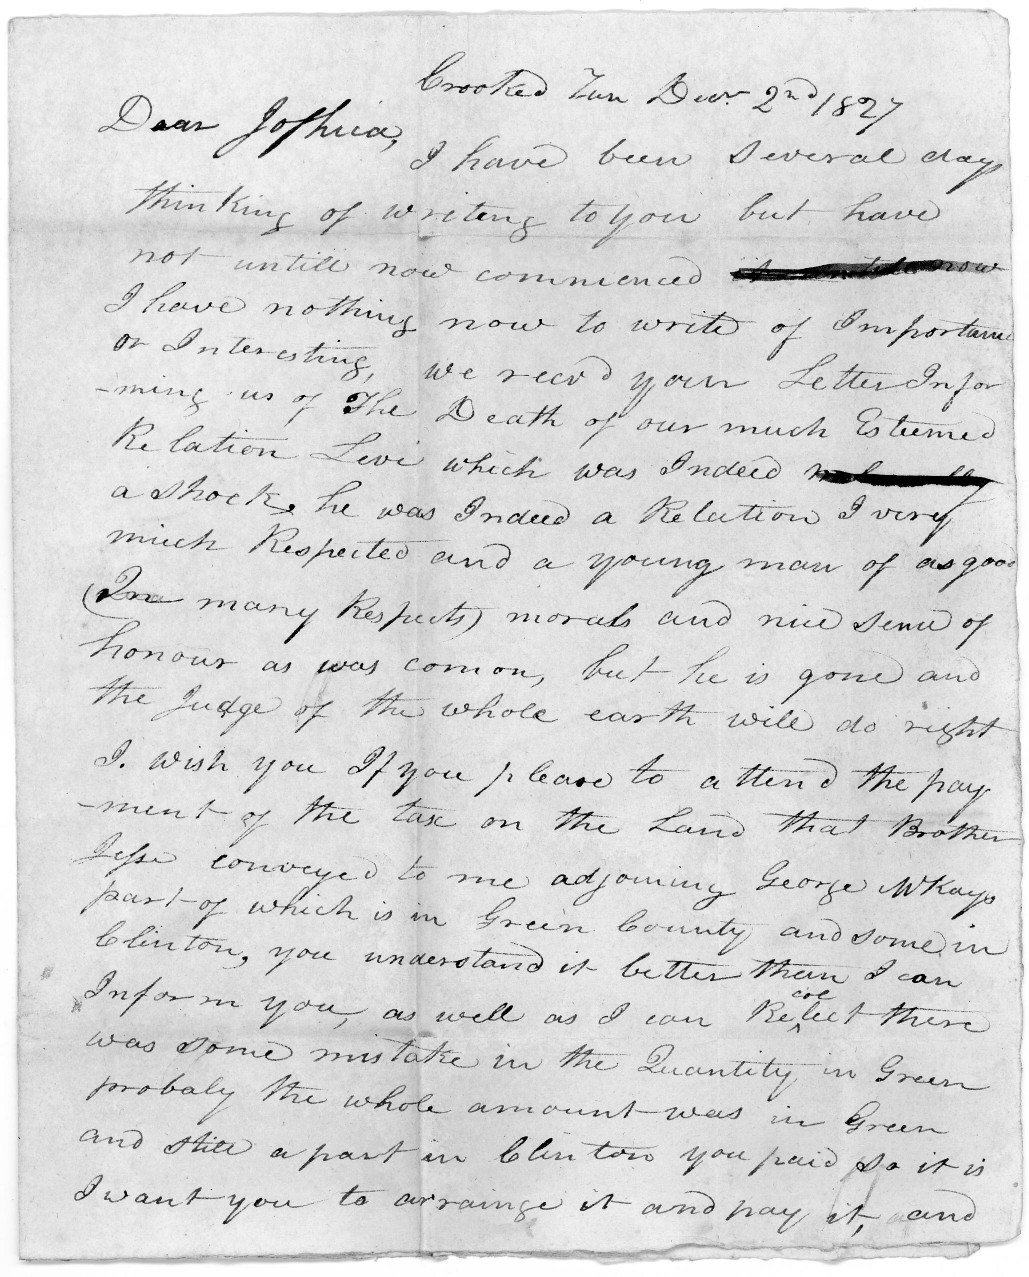 Crooked Run Decr. 2nd 1827
Dear Joshua,
I have been several days
thinking of writing to you but have
not untill now commenced
I have nothing now to write of Importance
or Interesting, we recvd your Letter Infor
-ming us of The Death of our much Esteemed
Relation Levi which was Indeed
a shock, he was Indeed a Relation I very
much Respected and a young man of as good
(In many Respects) morals and nice sense of
honour as was comon, but he is gone and
the Judge of the whole earth will do right
I. wish you If you please to attend the pay
-ment of the tax on the Land that Brother
Jesse conveyed to me adjoining George McKays
part of which is in Green County and some in
Clinton, you understand it better than I can
Inform you, as well as I can Recolect there
was some mistake in the Quantity in Green
probaly the whole amount was in Green
and still a part in Clinton you paid so it is
I want you to arrainge it and pay it, and